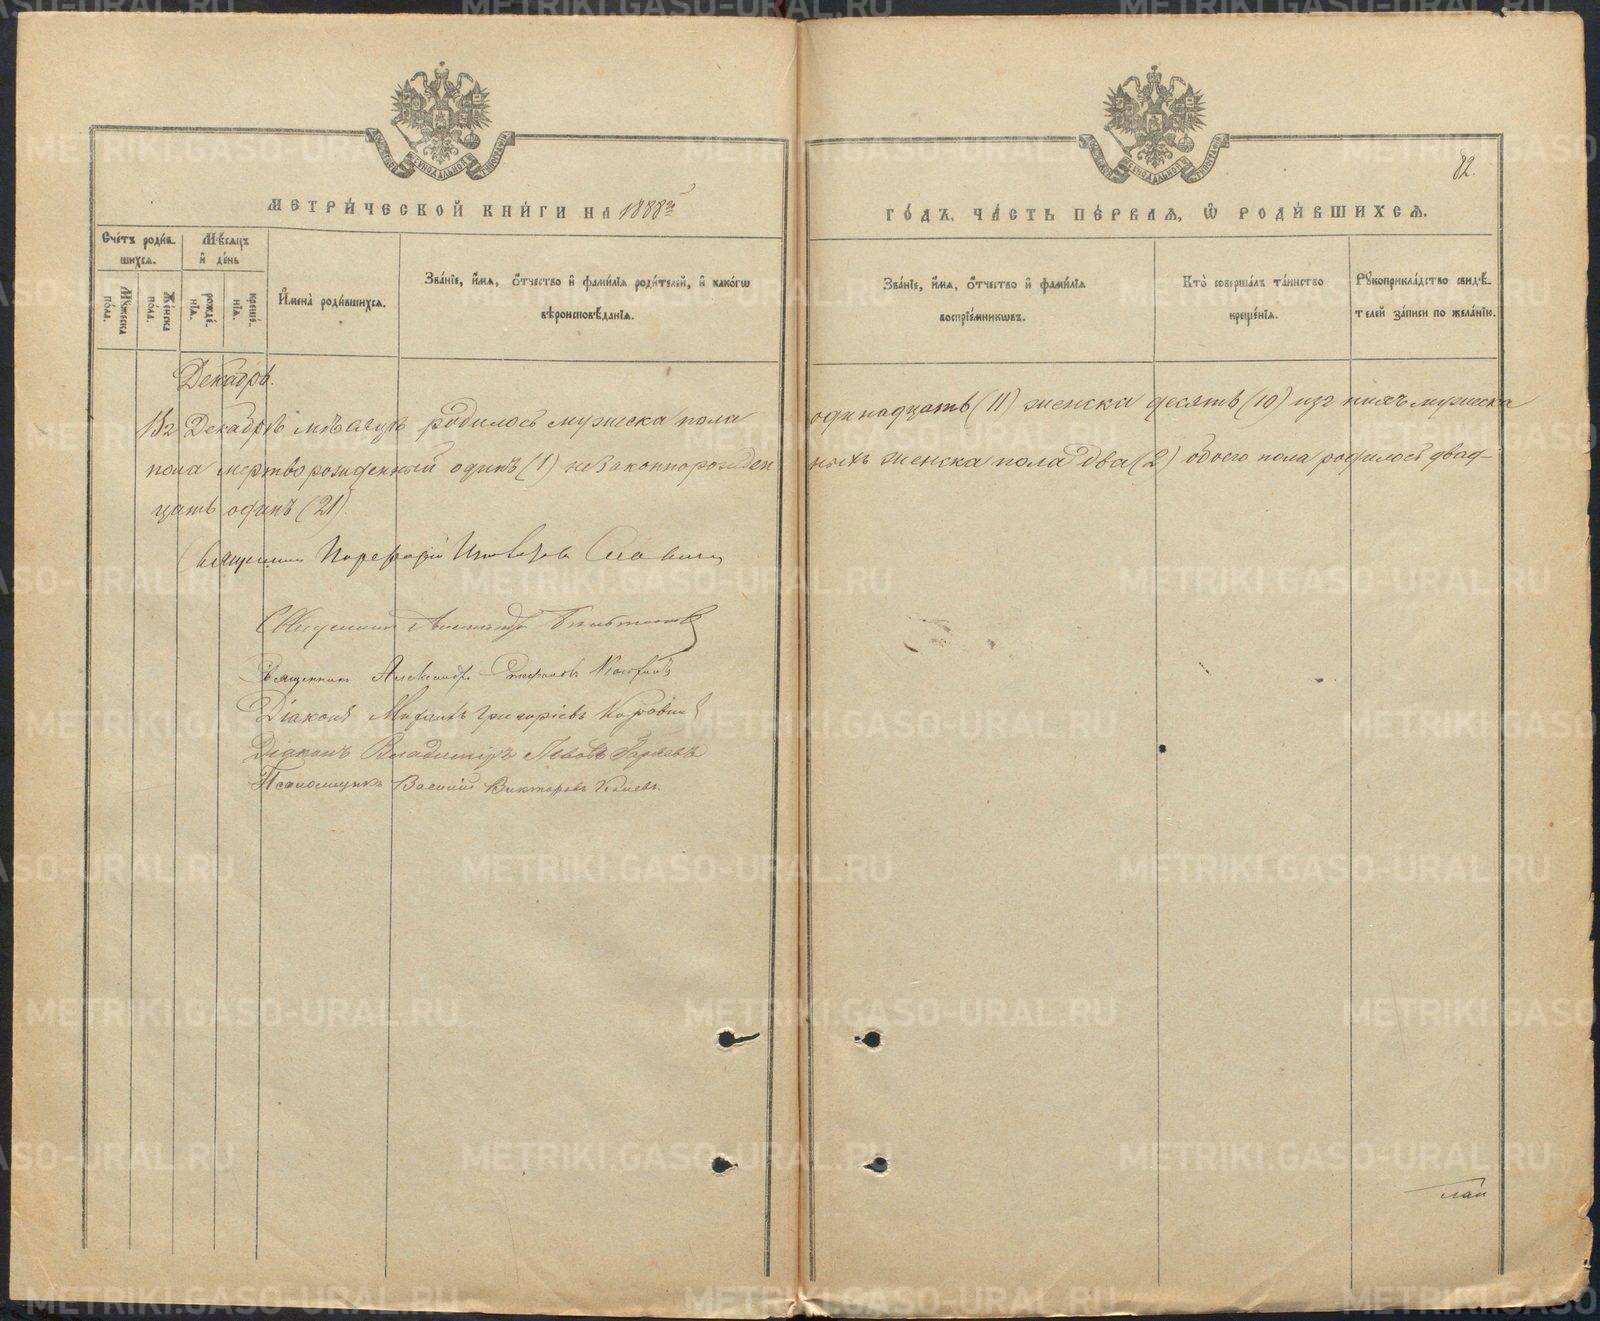 МЕТРИЧЕСКОЙ КНИГИ НА 1888й
ГОДЪ, ЧАСТЬ ПЕРВАЯ, Ѡ РОДИВШИХСЯ.
82.
Счетъ родив-
шихся.
Мѣсяцъ
и день
Мужеска
пола.
Женска
пола.
рожде-
нія.
креще-
нія.
Имена родившихся.
Званіе, имя, отчество и фамилія родителей, и какогѡ
вѣроисповѣданія.
Званіе, имя, отчество и фамилія
воспріемниковъ.
Кто совершалъ таинство
крещенія.
Рукоприкладство свидѣ-
телей записи по желанію.
Декабрь.
Въ Декабрѣ мѣсяцѣ родилось мужска пола одинадцать (11) женска десять (10) изъ нихъ мужска
пола мертворожденный одинъ (1) незаконнорожден
ныхъ женска пола два (2) обоего пола родилось двад-
цать одинъ (21).
Священникъ
Священникъ Александръ
Священникъ Александръ
Діаконъ Григорьевъ
Діаконъ Владиміръ Львовъ
Псаломщикъ Василій Викторовъ
METRIKI.GASO-URAL.RU